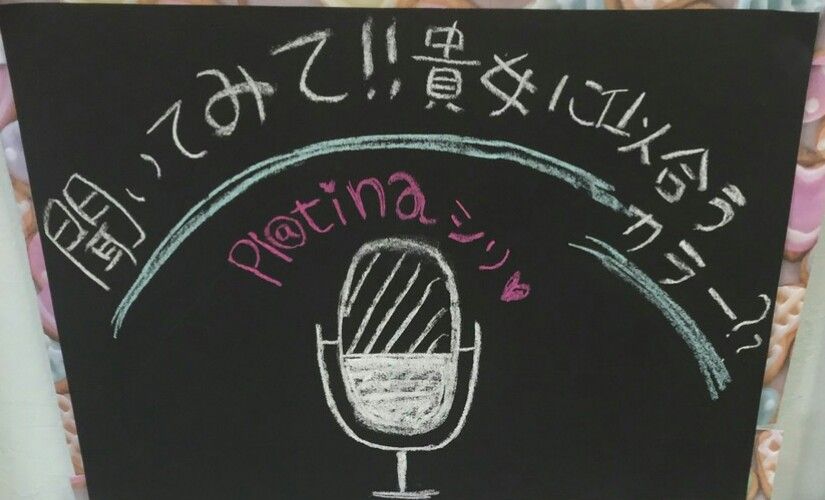 聞いてみて!!貴女に似合うカラー??
Pl@tinaシリ♥